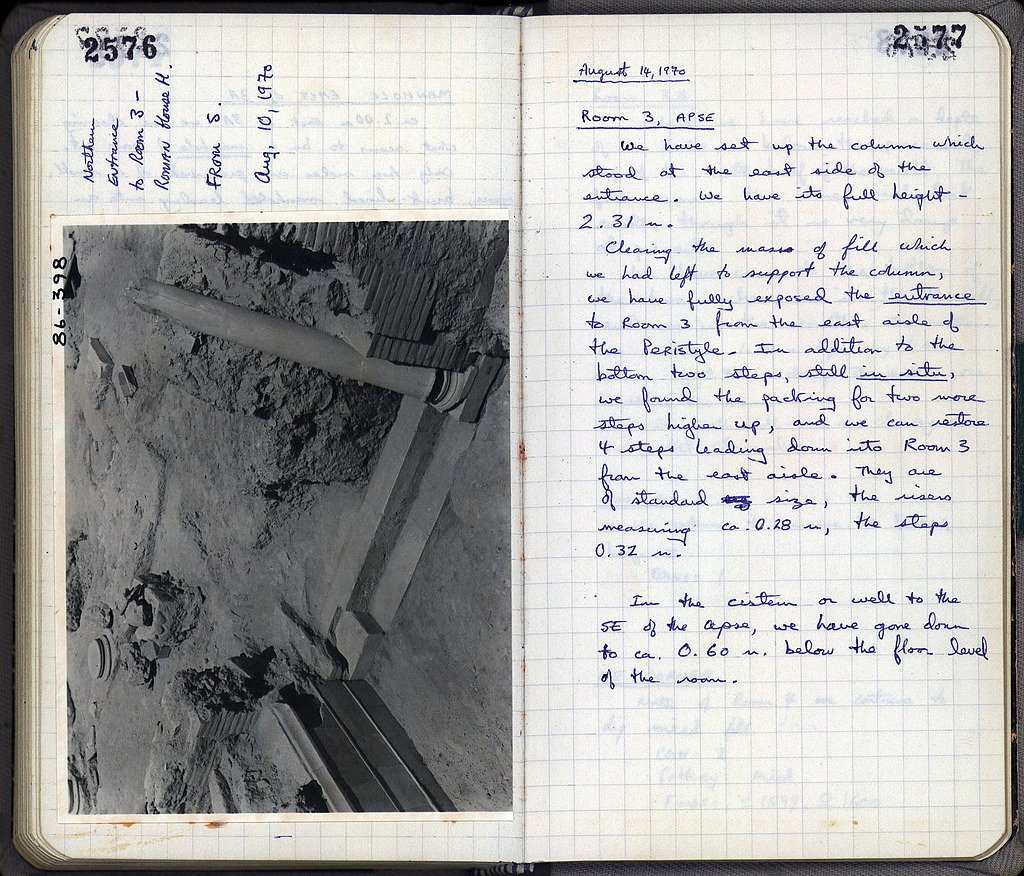 2576
Northern
Entrance
to Room 3 –
Roman House H.
From S.
Aug, 10, 1970
86-398
2577
August 14, 1970
Room 3, APSE
We have set up the column which
stood at the east side of the
entrance. We have its full height –
2.31 m.
Clearing the mass of fill which
we had left to support the column,
we have fully exposed the entrance
to Room 3 from the east aisle of
the Peristyle. In addition to the
bottom two steps, still in situ,
we found the packing for two more
steps higher up, and we can restore
4 steps leading down into Room 3
from the east aisle. They are
of standard size, the risers
measuring ca. 0.28 m, the steps
0.32 m.
In the cistern or well to the
SE of the apse, we have gone down
to ca. 0.60 m. below the floor level
of the room.